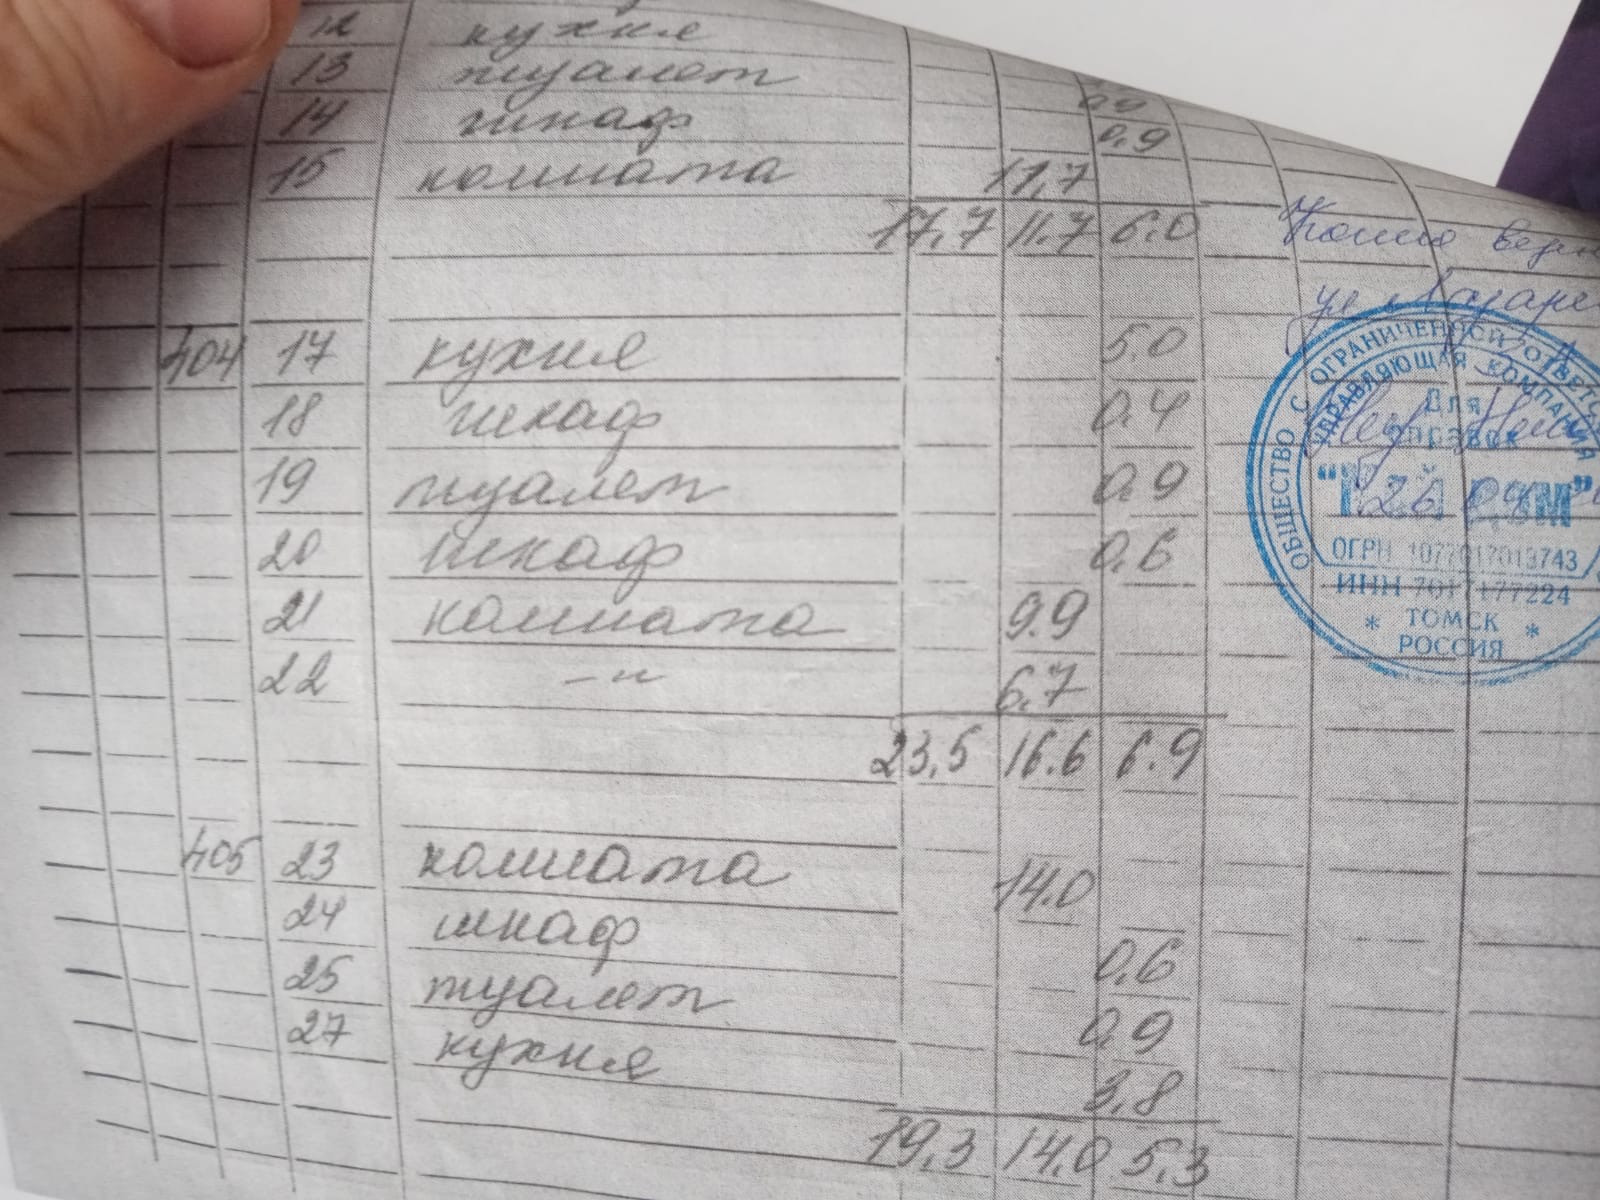 12 кухня
13 туалет 0,9
14 шкаф 0,9
15 комната 11,7
17,7 11.7 6.0
Копия верна
404 17 кухня 5.0
18 шкаф 0,4
19 туалет 0,9
20 шкаф 0,6
21 комната 9.9
22 –"– 6.7
23,5 16.6 6.9
405 23 комната 14.0
24 шкаф 0,6
25 туалет 0,9
27 кухня 3,8
19,3 14,0 5,3
ОБЩЕСТВО С ОГРАНИЧЕННОЙ ОТВЕТСТ
УПРАВЛЯЮЩАЯ КОМПАНИЯ
Для
справок
ОГРН 1077017013743
ИНН 7017177224
* ТОМСК *
РОССИЯ